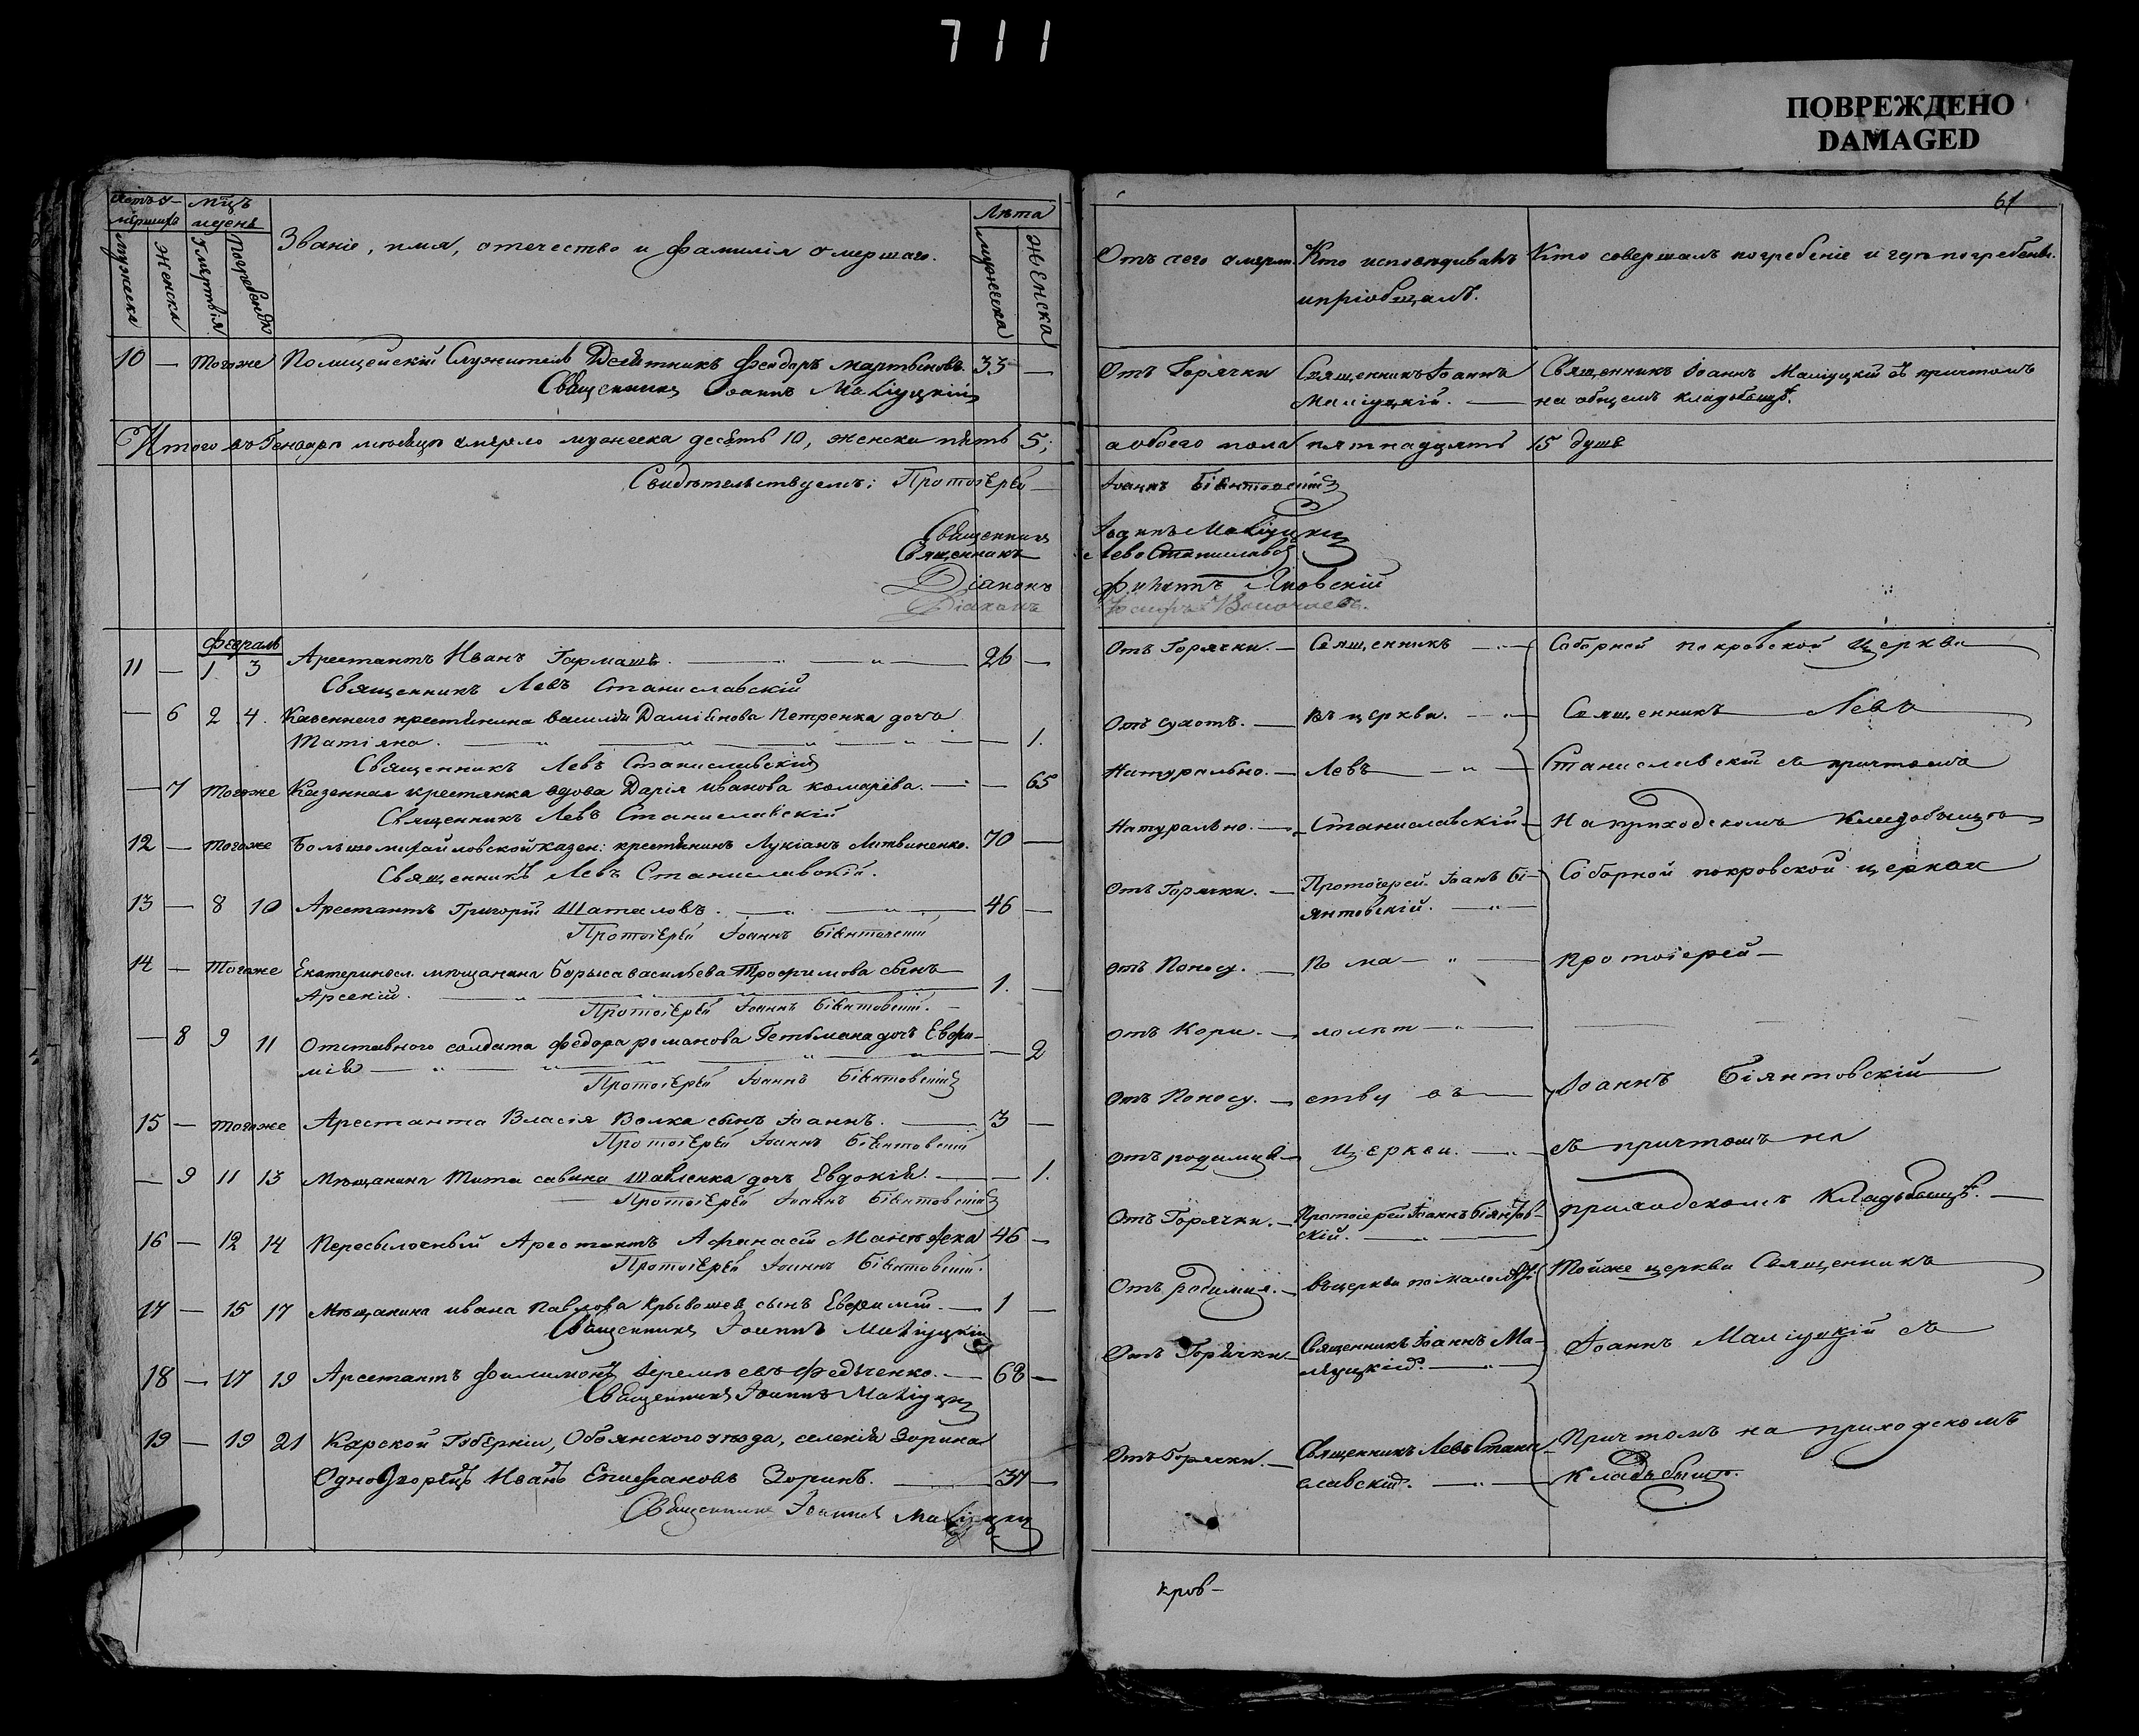 711
ПОВРЕЖДЕНО
DAMAGED
61
Мѣц
Лѣта
Званіе, имя, отечество и фамилія умершаго.
мужеска
женска
умертвія
погребенія
мужеска
женска
Отъ чего умерли.
Кто исповѣдывалъ
и пріобщалъ.
Кто совершалъ погребеніе и гдѣ погребены.
10 — Тогоже Полицейскій Служитель Десятникъ Феодоръ Мартыновъ 33 —
Священникъ Іоаннъ Маліуцкій
Отъ Горячки
Священникъ Іоаннъ
Маліуцкій.
Священникъ Іоаннъ Маліуцкій съ причтомъ
на общемъ кладбищѣ.
Итого въ Генварѣ мѣсяцѣ умерло мужеска десять 10, женска пять 5; а обоего пола пятнадцать 15 душъ
Свидѣтельствуемъ: Протоіерей Іоаннъ Біянтовскій
Священникъ Іоаннъ Маліуцкій
Священникъ Левъ Станиславскій
Діаконъ Яновскій
Діаконъ
Февраль
11 — 1 3 Арестантъ Иванъ Гармашъ. 26 —
Священникъ Левъ Станиславскій
— 6 2 4. Казеннаго крестьянина Василія Даміянова Петренка дочь
Татіяна. — 1.
Священникъ Левъ Станиславскій
— 7 Тогоже Казенная крестьянка вдова Дарія Иванова Комарѣва. — 65
Священникъ Левъ Станиславскій
12 — Тогоже Большомихайловской казен: крестьянинъ Лукіанъ Литвиненко. 70 —
Священникъ Левъ Станиславскій.
13 — 8 10 Арестантъ Григорій Шаталовъ. 46 —
Протоіерей Іоаннъ Біянтовскій
14 — Тогоже Екатериносл. мѣщанина Бориса Васильева Трофимова сынъ
Арсеній. 1. —
Протоіерей Іоаннъ Біянтовскій.
— 8 9 11 Отставного солдата Федора Романова Гетьмана дочь Евфи-
мія — 2
Протоіерей Іоаннъ Біянтовскій
15 — Тогоже Арестанта Власія Волка сынъ Іоаннъ. 3 —
Протоіерей Іоаннъ Біянтовскій
— 9 11 13 Мѣщанина Тита Савина Шавленка дочь Евдокія. — 1.
Протоіерей Іоаннъ Біянтовскій
16 — 12 14 Пересылочный Арестантъ Афанасій 46 —
Протоіерей Іоаннъ Біянтовскій.
17 — 15 17 Мѣщанина Ивана Павлова Крывошея сынъ Евфимій. 1 —
Священникъ Іоаннъ Маліуцкій
18 — 17 19 Арестантъ Филимонъ Іеремѣевъ Федьченко. 68 —
Священникъ Іоаннъ Маліуцкій
19 — 19 21 Курской Губерніи, Обоянского уѣзда, селенія Зорина
Однодворецъ Иванъ Епифановъ Зоринъ. 37 —
Священникъ Іоаннъ Маліуцкій
Отъ Горячки. — Священникъ
Отъ сухотъ. — въ церкви.
Натурально. — Левъ
Натурально. — Станиславскій
Отъ Горячки. — Протоіерей Іоанъ Бі-
янтовскій.
Отъ Поносу. — По ма-
Отъ Кори. — лолѣт
Отъ Поносу. — ству въ
Отъ родимца — церкви.
Отъ Горячки. — Протоіерей Іоаннъ Біянтов-
скій.
Отъ родимца. — въ церкви по малолѣт.
Отъ Горячки — Священникъ Іоаннъ Ма-
ліуцкій.
Отъ Горячки. — Священникъ Левъ Стани-
славскій.
Соборной Покровской Церкви
Священникъ Левъ
Станиславскій съ причтомъ
На приходскомъ кладбыщѣ
Соборной покровской церкви
протоіерей —
Іоаннъ Біянтовскій
съ причтомъ на
приходскомъ кладьбыщѣ.
Тойже церкви Священникъ
Іоаннъ Маліуцкій съ
Причтомъ на приходскомъ
кладьбыщѣ.
кров-